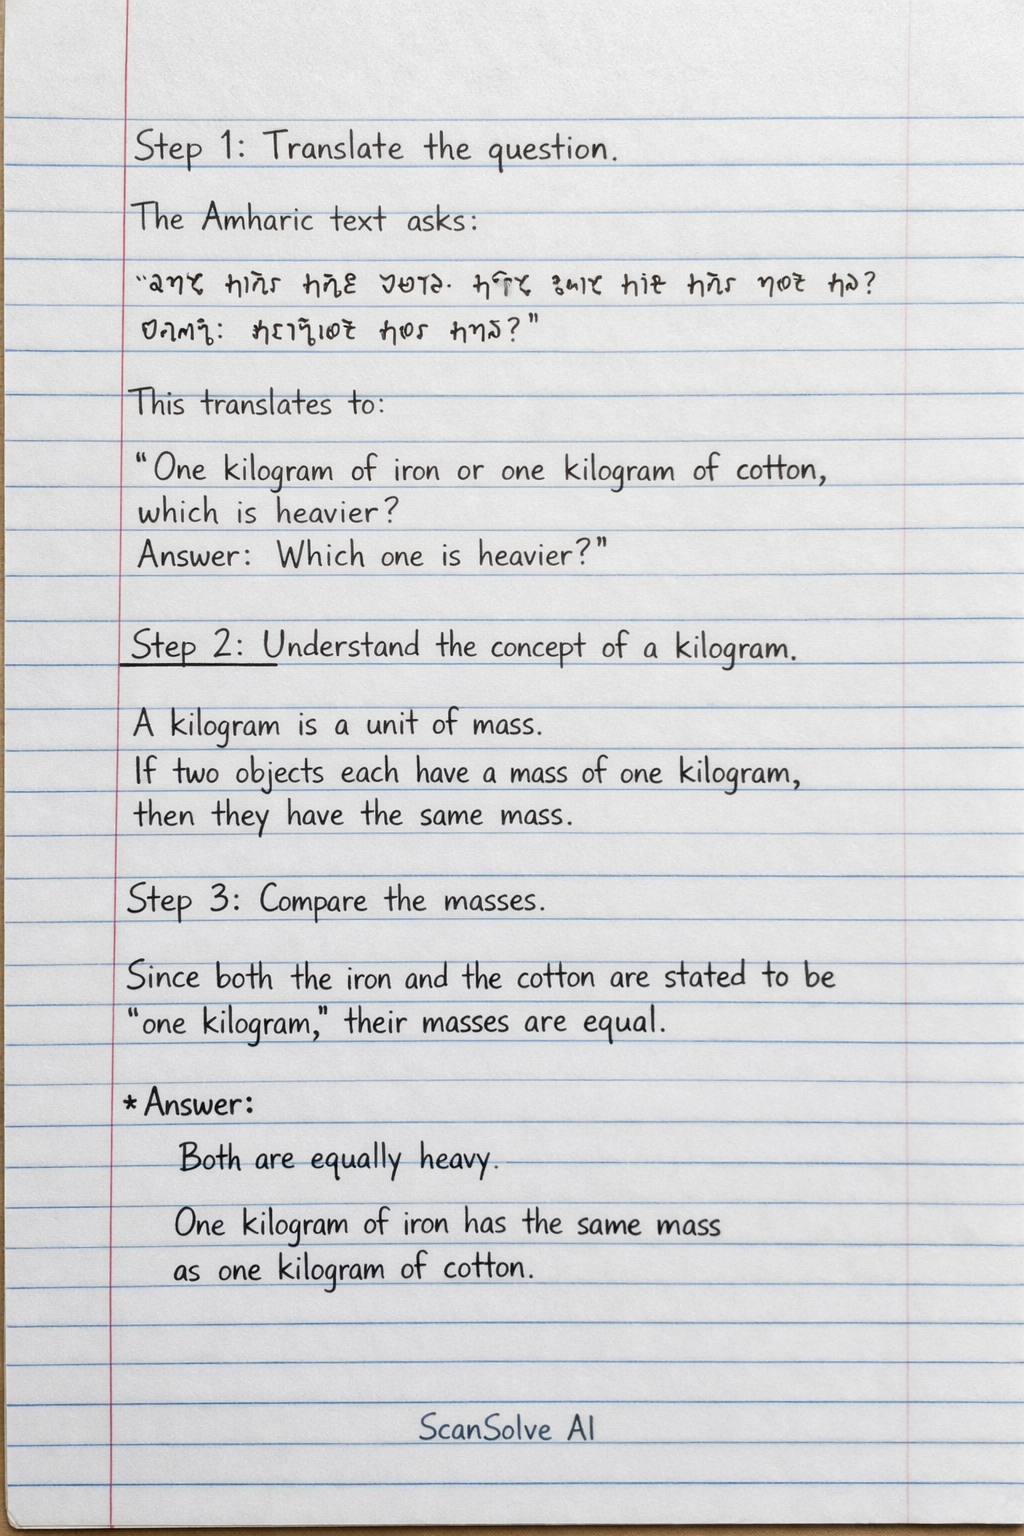 Step 1: Translate the question.
The Amharic text asks:
This translates to:
"One kilogram of iron or one kilogram of cotton,
which is heavier?
Answer: Which one is heavier?"
Step 2: Understand the concept of a kilogram.
A kilogram is a unit of mass.
If two objects each have a mass of one kilogram,
then they have the same mass.
Step 3: Compare the masses.
Since both the iron and the cotton are stated to be
"one kilogram," their masses are equal.
* Answer:
Both are equally heavy.
One kilogram of iron has the same mass
as one kilogram of cotton.
ScanSolve AI